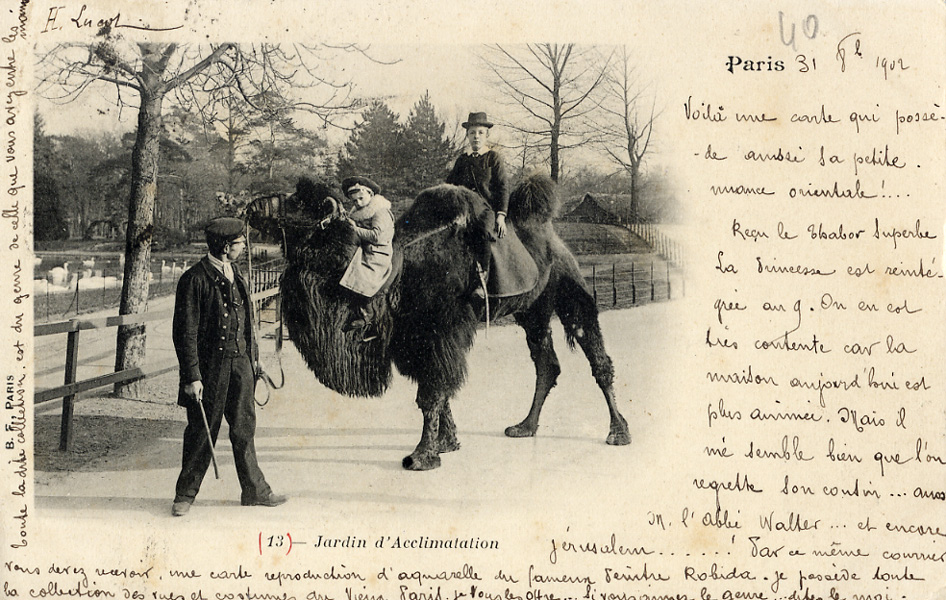 H. Lucot
40
Paris 31 8bre 1902
Voilà une carte qui possè-
-de aussi sa petite
nuance orientale!...
Reçu le Thabor Superbe
La Princesse est réinté-
grée au 9. On en est
très contente car la
maison aujourd'hui est
plus animée. Mais il
me semble bien que l'on
regrette son cousin ... aussi
M. l'Abbé Walter ... et encore
jérusalem.......! Par ce même courrier
vous devez recevoir, une carte reproduction d'aquarelle du fameux Peintre Robida. je possède toute
la collection des rues et costumes du Vieux Paris, je vous les offre.. Si vous aimez le genre ...dites le moi.
(13) — Jardin d'Acclimatation
B. F. PARIS
toute la dite collection, est du genre de celle que vous avez entre les mains